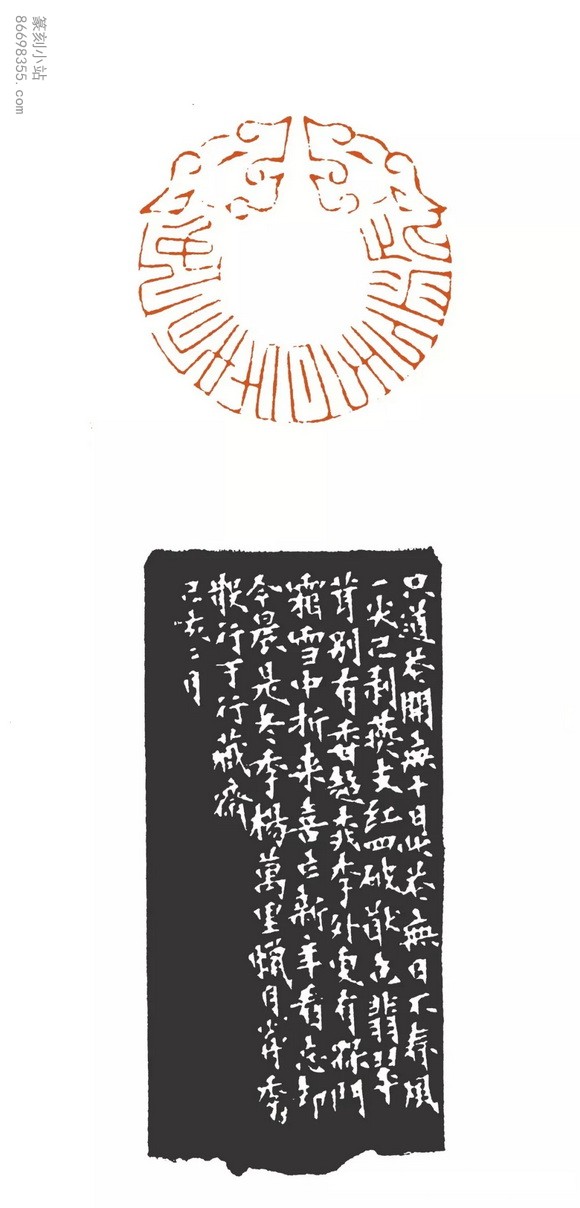 篆刻小站
86698355.com
只道花開無十日此花無日不春風
一尖已剥燕支紅四破猷包翡翠
茸别有香超桃李外更有門
霜雪中折来喜作新年看忘却
今晨是冬季楊萬里臘月季
行于行藏齋
己亥二月